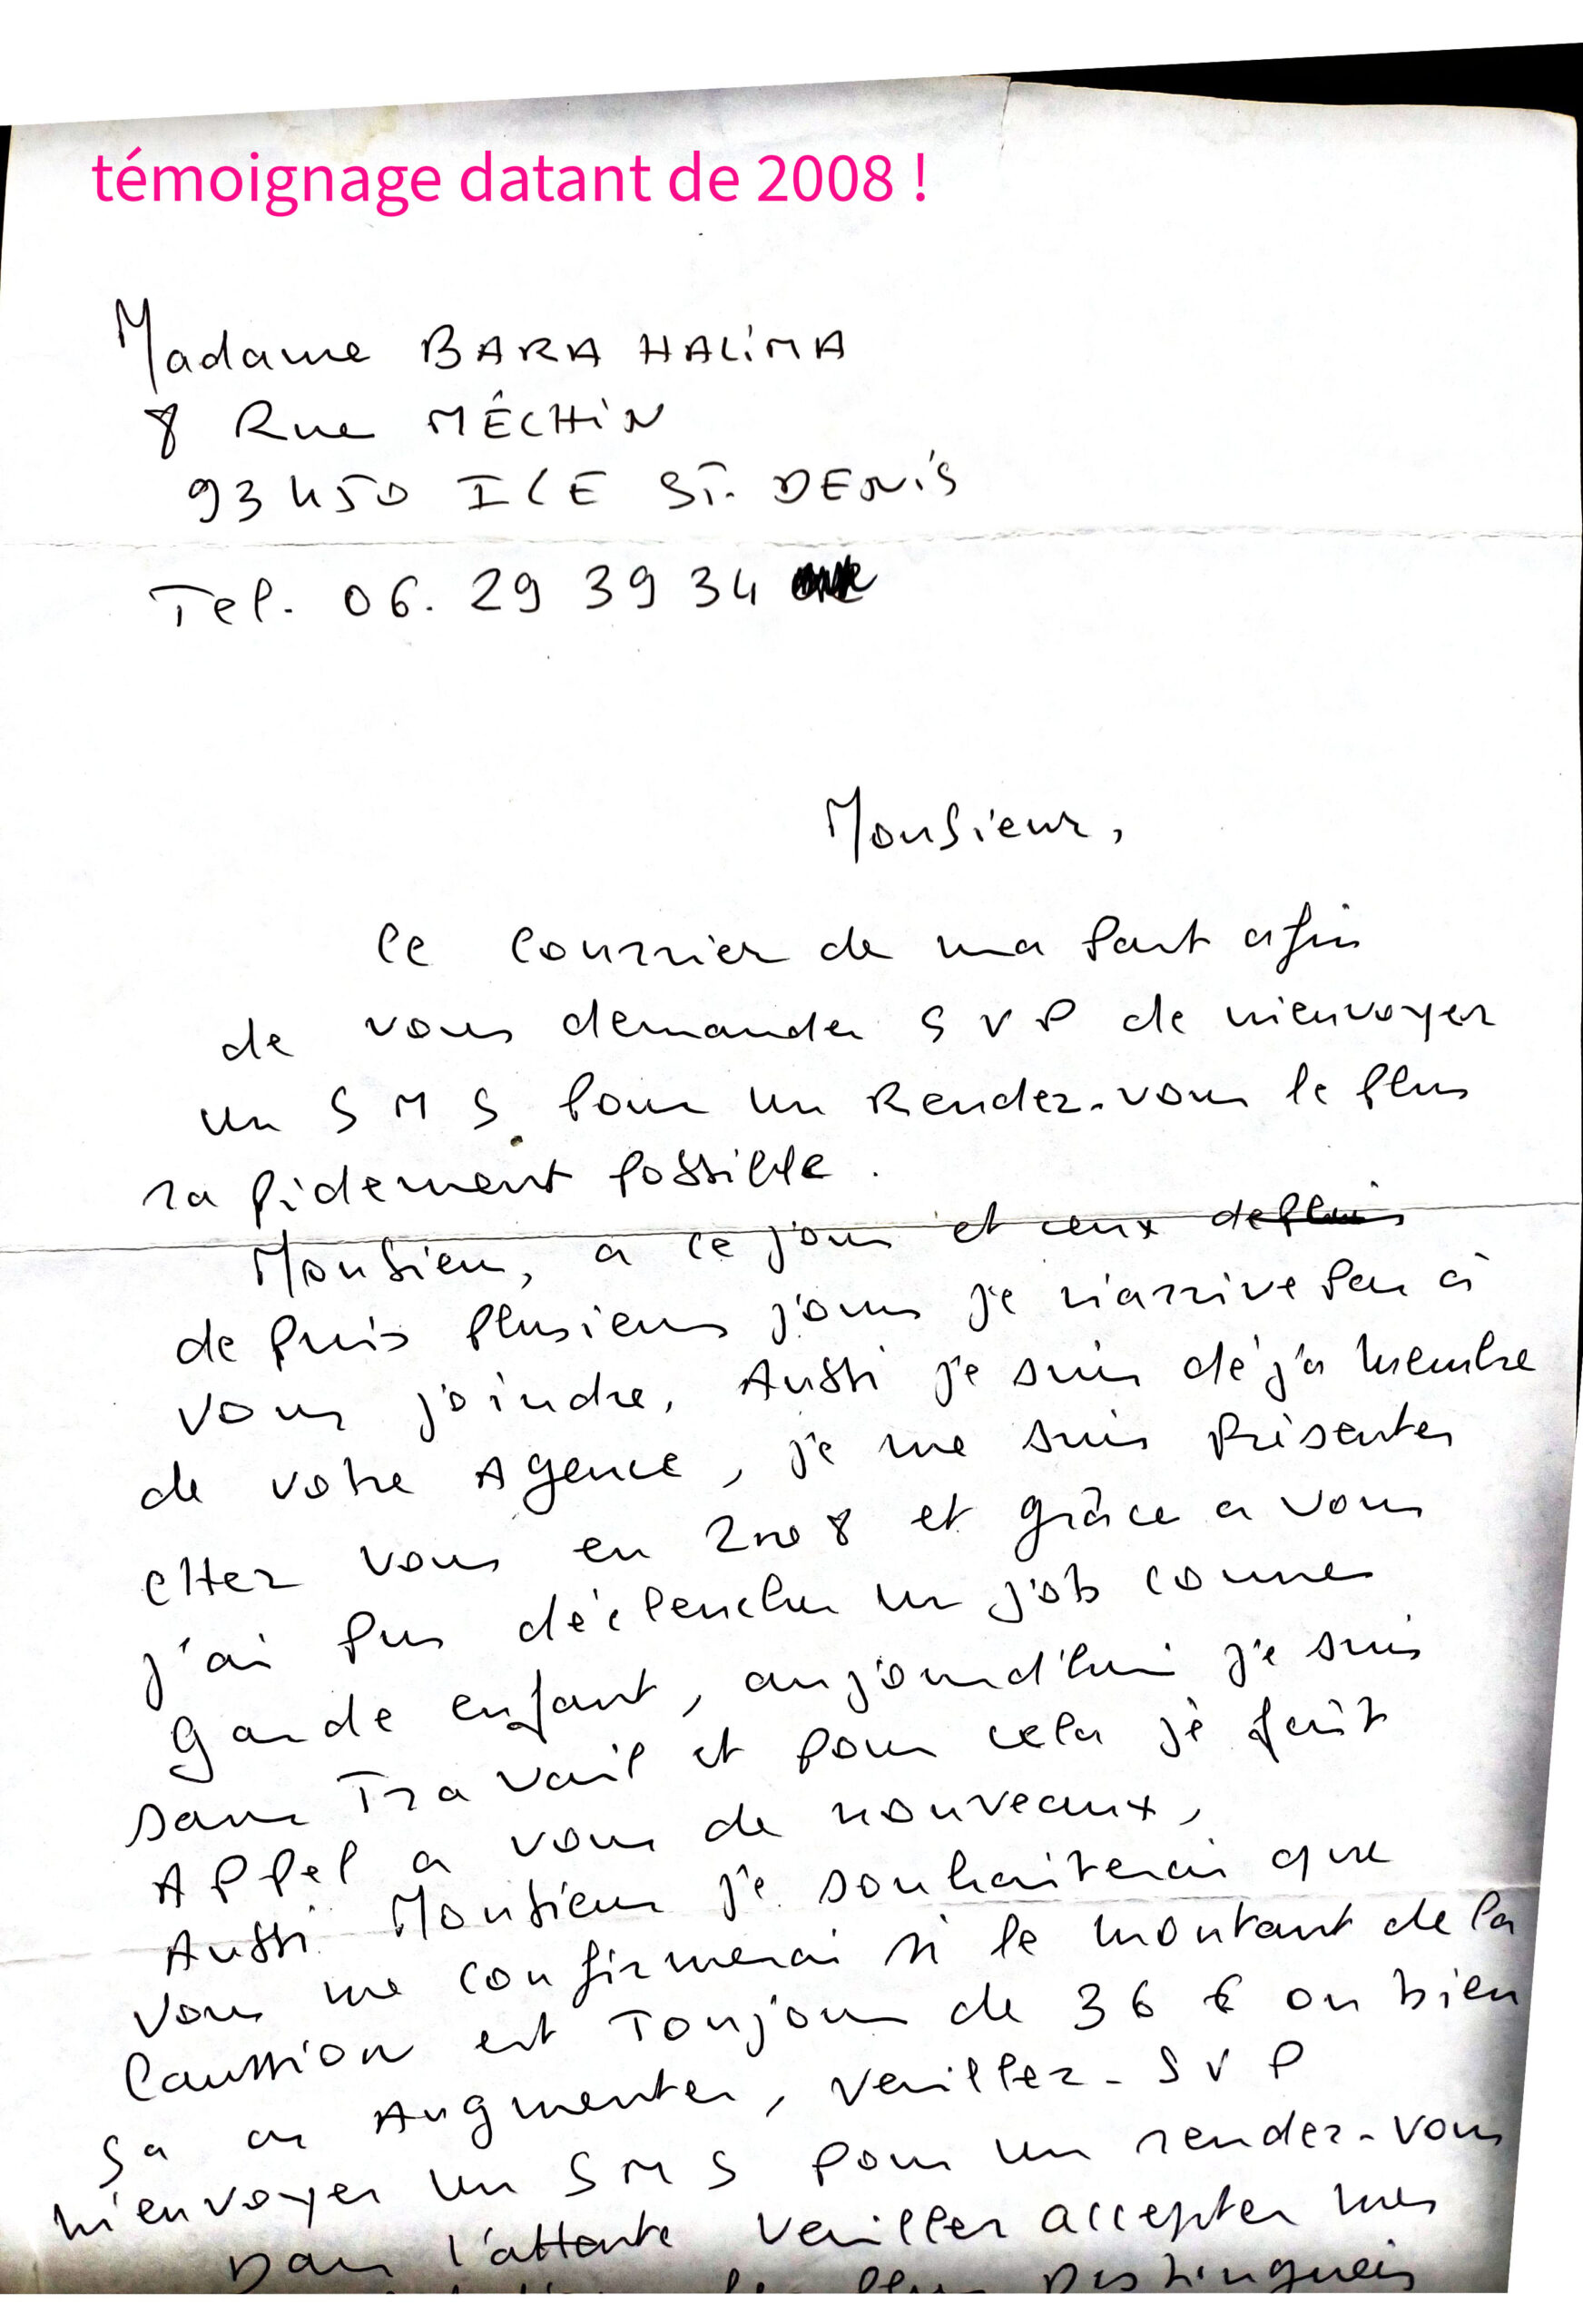 témoignage datant de 2008 !
Madame BARA HALiMA
8 Rue MÉCHiN
93450 ILE ST. DENiS
Tel. 06. 29 39 34
Monsieur,
Ce Courrier de ma Part afin
de vous demander S V P de m'envoyer
un S M S Pour un Rendez-vous le Plus
rapidement Possible.
Monsieur, a ce jour et ceux depuis
depuis Plusieurs jours je n'arrive Pas à
vous joindre, Aussi je suis déjà membre
de votre Agence, je me suis Présenter
CHez vous en 2008 et grâce a vous
j'ai Pus déclencher un job comme
garde enfant, aujourd'hui je suis
sans Travail et pour cela je fait
APPel a vous de nouveaux,
Aussi Monsieur je souhaiterai que
vous me confirmerai si le montant de la
Caussion est Toujours de 36 € ou bien
sa a Augmenter, veuillez-SVP
m'envoyer un SMS pour un rendez-vous
Dans l'attente veuillez accepter mes
les Plus Distingueis